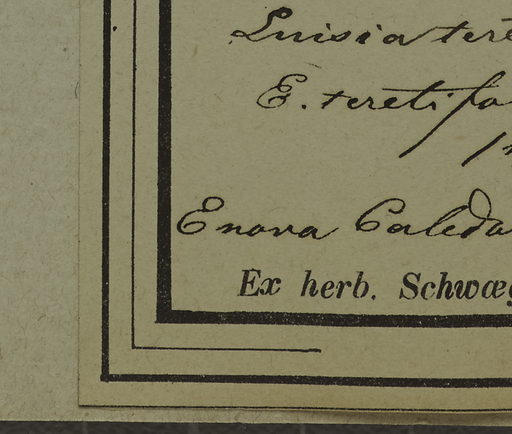 Luisia tere
E. teretifo
E nova Caledo
Ex herb. Schwæg